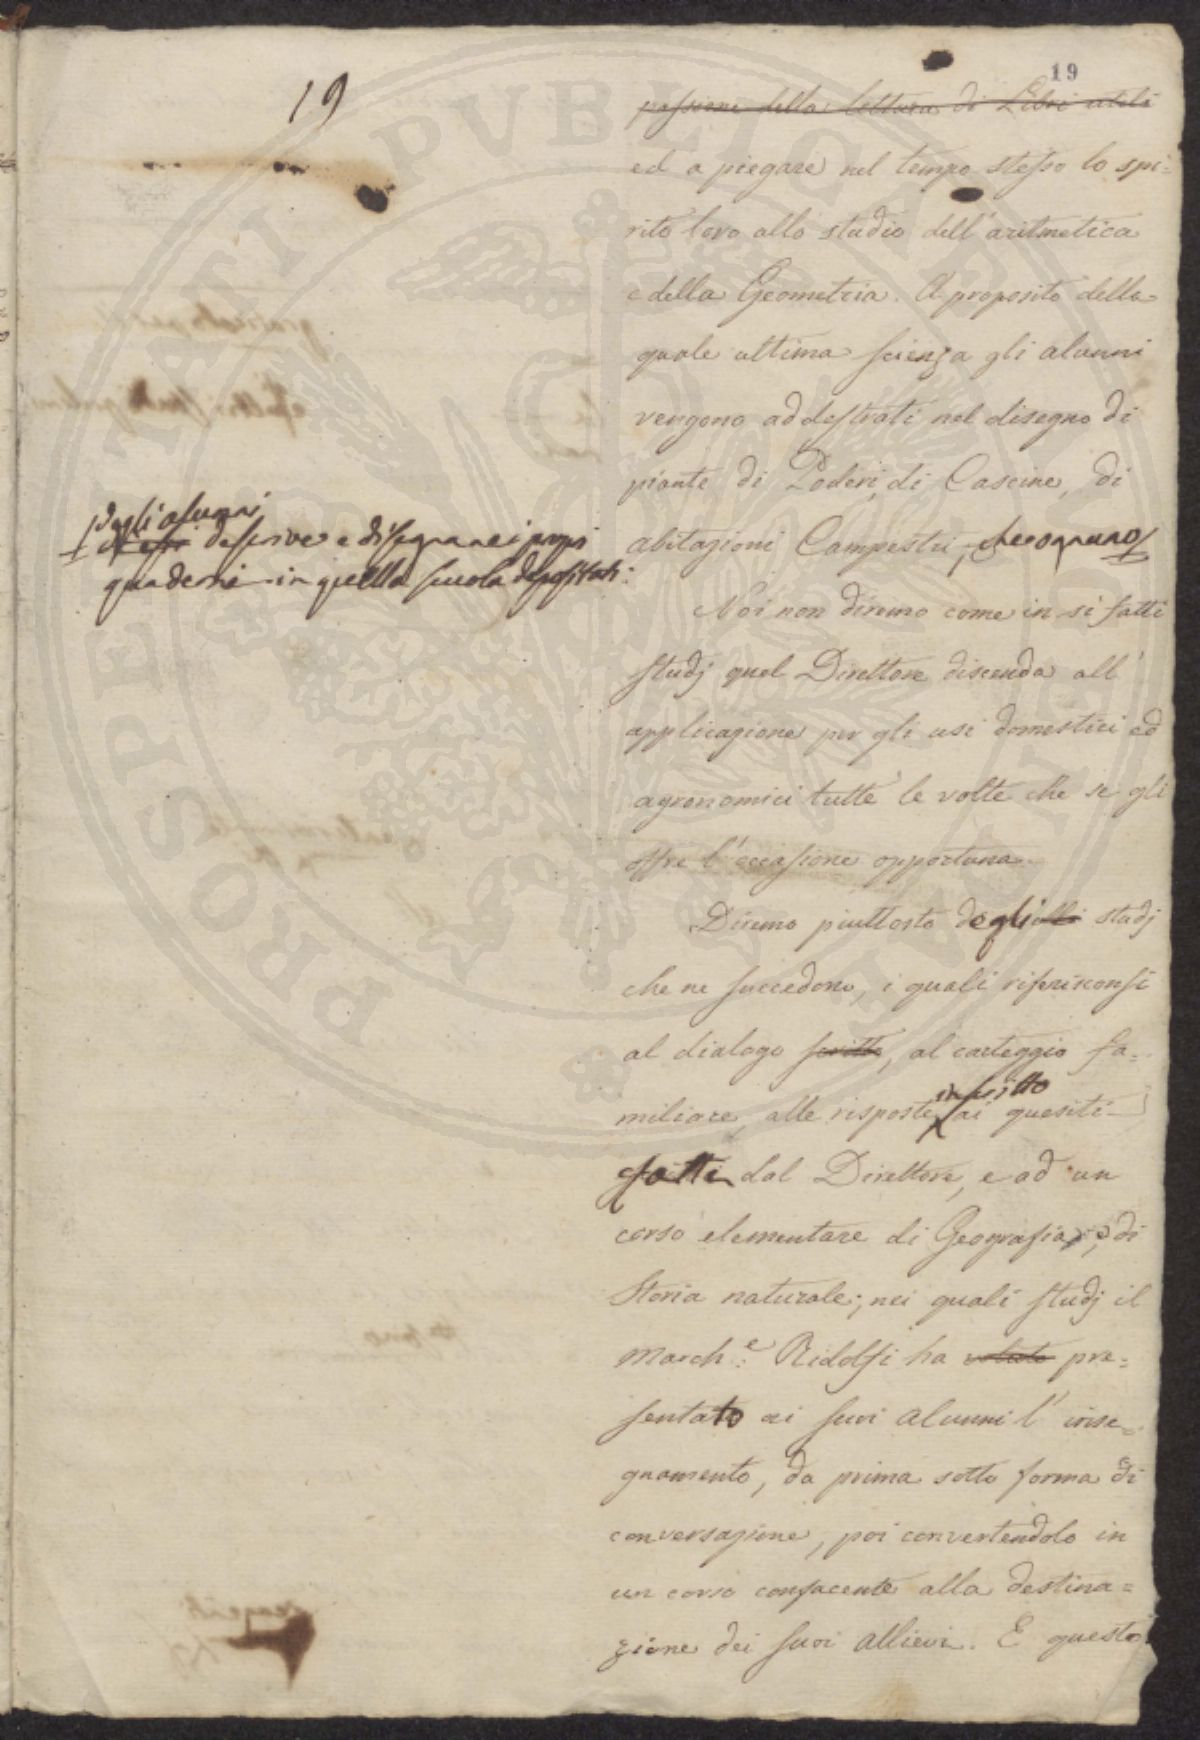 19
19
passione della lettura di Libri utili
ed a piegare nel tempo stesso lo spi=
rito loro allo studio dell'aritmetica
e della Geometria. A proposito della
quale ultima scienza gli alunni
vengono addestrati nel disegno di
piante di Poderi, di Cascine, di
abitazioni Campestri,
dagli alunni
descrive e disegnare i propri
quaderni in quella scuola depositati:
Noi non diremo come in sì fatti
studj quel Direttore discenda all'
applicazione per gli usi domestici ed
agronomici tutte le volte che se gli
offre l'occasione opportuna.
Diremo piuttosto degli studj
che ne succedono, i quali riferisconsi
al dialogo scritto, al carteggio fa=
miliare, alle risposte in scritto ai quesiti
fatti dal Direttore, e ad un
corso elementare di Geografia, e di
Storia naturale; nei quali studj il
March.e Ridolfi ha voluto pre=
sentato ai suoi alunni l'inse=
gnamento, da prima sotto forma di
conversazione, poi convertendolo in
un corso confacente alla destina=
zione dei suoi allievi. E questo
PROSPERITATI PUBLICAE